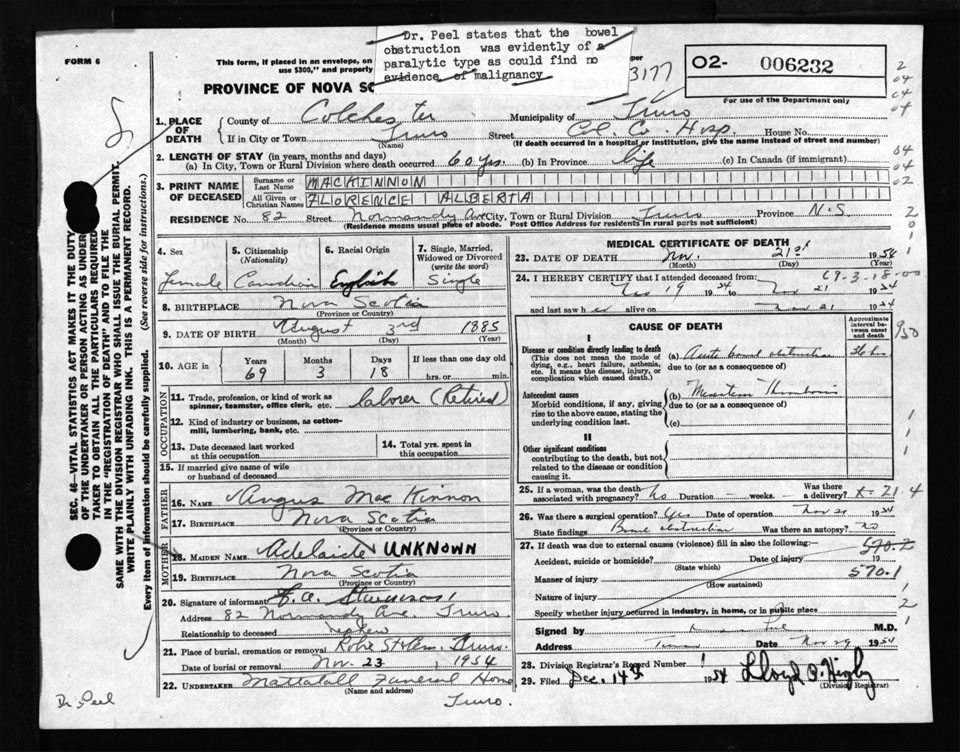 Dr. Peel states that the bowel
obstruction was evidently of a
paralytic type as could find no
evidence of malignancy
FORM 6
This form, if placed in an envelope, on
use $300," and properly
per
3177
O2- 006232
For use of the Department only
PROVINCE OF NOVA SC
1. PLACE OF DEATH
County of Colchester Municipality of Truro
If in City or Town Truro Street Col. Co. Hosp. House No.
(Name) (If death occurred in a hospital or institution, give the name instead of street and number)
2. LENGTH OF STAY (in years, months and days)
(a) In City, Town or Rural Division where death occurred 60 yrs. (b) In Province life (c) In Canada (if immigrant)
3. PRINT NAME OF DECEASED
Surname or Last Name MACKINNON
All Given or Christian Names FLORENCE ALBERTA
RESIDENCE No. 82 Street Normandy Ave City, Town or Rural Division Truro Province N.S.
(Residence means usual place of abode. Post Office Address for residents in rural parts not sufficient)
4. Sex Female
5. Citizenship (Nationality) Canadian
6. Racial Origin English
7. Single, Married, Widowed or Divorced (write the word) Single
8. BIRTHPLACE Nova Scotia
(Province or Country)
9. DATE OF BIRTH August 3rd 1885
(Month) (Day) (Year)
10. AGE in Years 69 Months 3 Days 18 If less than one day old hrs. or min.
OCCUPATION
11. Trade, profession, or kind of work as spinner, teamster, office clerk, etc. laborer (Retired)
12. Kind of industry or business, as cotton-mill, lumbering, bank, etc.
13. Date deceased last worked at this occupation
14. Total yrs. spent in this occupation
15. If married give name of wife or husband of deceased
FATHER
16. NAME Angus MacKinnon
17. BIRTHPLACE Nova Scotia
(Province or Country)
MOTHER
18. MAIDEN NAME Adelaide UNKNOWN
19. BIRTHPLACE Nova Scotia
(Province or Country)
20. Signature of informant
Address 82 Normandy Ave. Truro
Relationship to deceased nephew
21. Place of burial, cremation or removal Robie St. Truro.
Date of burial or removal Nov. 23, 1954
22. UNDERTAKER Mattatall Funeral Home
(Name and address)
Truro.
MEDICAL CERTIFICATE OF DEATH
23. DATE OF DEATH Nov. 21st 1954
(Month) (Day) (Year)
24. I HEREBY CERTIFY that I attended deceased from 69-3-18-00
Nov 19 1954 to Nov 21 1954
and last saw her alive on Nov 21 1954
CAUSE OF DEATH
Approximate interval between onset and death
I
Disease or condition directly leading to death (a) Acute bowel obstruction 36 hrs
(This does not mean the mode of dying, e.g., heart failure, asthenia, etc. It means the disease, injury, or complication which caused death.)
due to (or as a consequence of)
Antecedent causes (b) Thrombosis
Morbid conditions, if any, giving rise to the above cause, stating the underlying condition last.
due to (or as a consequence of)
(c)
II
Other significant conditions
contributing to the death, but not related to the disease or condition causing it.
25. If a woman, was the death associated with pregnancy? No Duration — weeks. — Was there a delivery?
26. Was there a surgical operation? Yes Date of operation Nov 20 1954
State findings Bowel obstruction Was there an autopsy? No
27. If death was due to external causes (violence) fill in also the following:—
Accident, suicide or homicide? Date of injury 19
(State which)
570.2
570.1
Manner of injury
(How sustained)
Nature of injury
Specify whether injury occurred in industry, in home, or in public place
Signed by M.D.
Address Truro Date Nov 29 1954
28. Division Registrar's Record Number
29. Filed Dec. 14th 1954
(Division Registrar)
SEC. 46—VITAL STATISTICS ACT MAKES IT THE DUTY
OF THE UNDERTAKER OR PERSON ACTING AS UNDER-
TAKER TO OBTAIN ALL THE PARTICULARS REQUIRED
IN THE "REGISTRATION OF DEATH" AND TO FILE THE
SAME WITH THE DIVISION REGISTRAR WHO SHALL ISSUE THE BURIAL PERMIT.
WRITE PLAINLY WITH UNFADING INK. THIS IS A PERMANENT RECORD.
Every item of information should be carefully supplied. (See reverse side for instructions.)
Dr. Peel